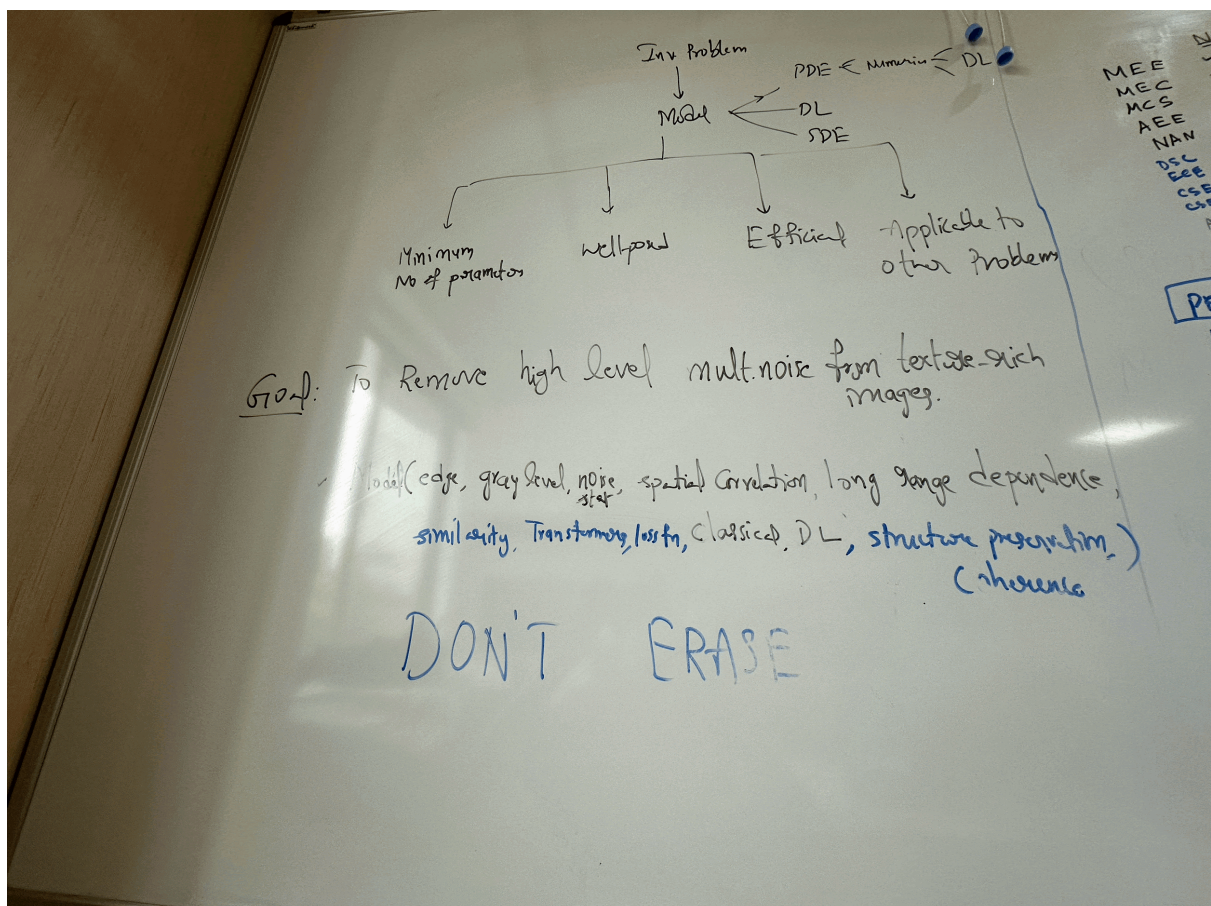 Inv Problem
PDE < Numerics < DL
Model
DL
SDE
Minimum
No of parameters
Wellposed
Efficient
Applicable to
other Problems
Goal: To Remove high level mult. noise from texture-rich
images.
Model (edge, gray level, noise, spatial Correlation, long range dependence,
similarity, Transformers, loss fn, Classical, DL, structure preservation, )
Coherence
DON'T ERASE
MEE
MEC
MCS
AEE
NAN
DSC
ECE
CSE